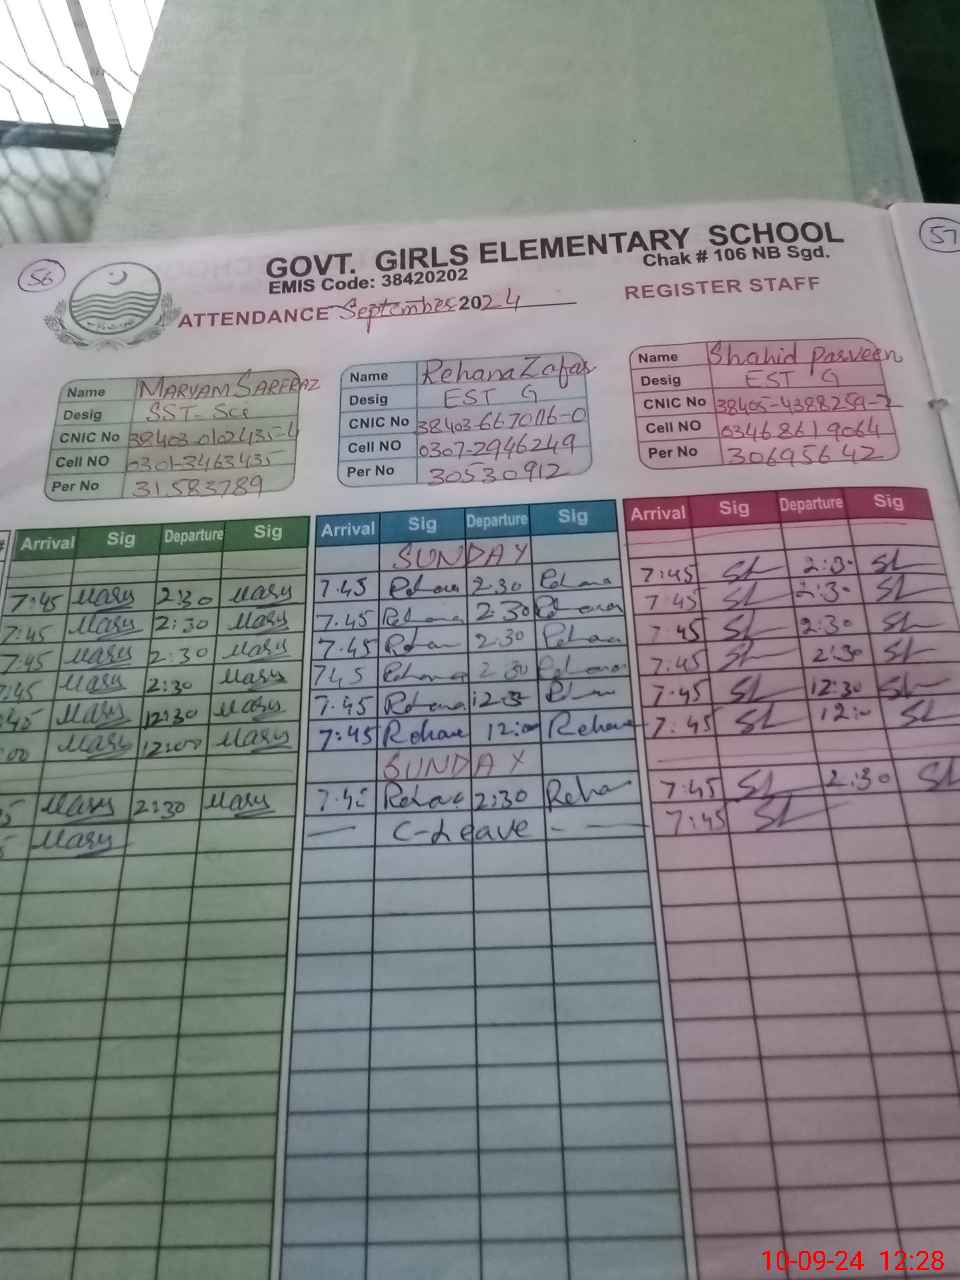 56
57
GOVT. GIRLS ELEMENTARY SCHOOL
EMIS Code: 38420202
Chak # 106 NB Sgd.
ATTENDANCE September 2024
REGISTER STAFF
Name MARYAM SARFRAZ
Desig SST-Sce
CNIC No 38403-0102435-4
Cell NO 0301-3463435
Per No 31583789
Name Rehana Zafar
Desig EST G
CNIC No 38403-6670116-0
Cell NO 0307-2946249
Per No 30530912
Name Shahid Parveen
Desig EST G
CNIC No 38405-4388259-2
Cell NO 03468619064
Per No 30695642
Arrival Sig Departure Sig Arrival Sig Departure Sig Arrival Sig Departure Sig
SUNDAY
7:45 Mary 2:30 Mary 7.45 Rehana 2.30 Rehana 7:45 SL 2:30 SL
7:45 Mary 2:30 Mary 7.45 Rehana 2 30 Rehana 7:45 SL 2:30 SL
7:45 Mary 2:30 Mary 7.45 Rehana 2:30 Rehana 7:45 SL 2:30 SL
7:45 Mary 2:30 Mary 745 Rehana 2 30 Rehana 7:45 SL 2:30 SL
:45 Mary 12:30 Mary 7.45 Rehana 12:3 7:45 SL 12:30 SL
:00 Mary 12:00 Mary 7:45 Rehana 12:00 Rehana 7:45 SL 12:00 SL
SUNDAY
5 Mary 2:30 Mary 7:45 Rehana 2:30 Reha 7:45 SL 2:30 SL
5 Mary — C-Leave - — 7:45 SL
10-09-24 12:28